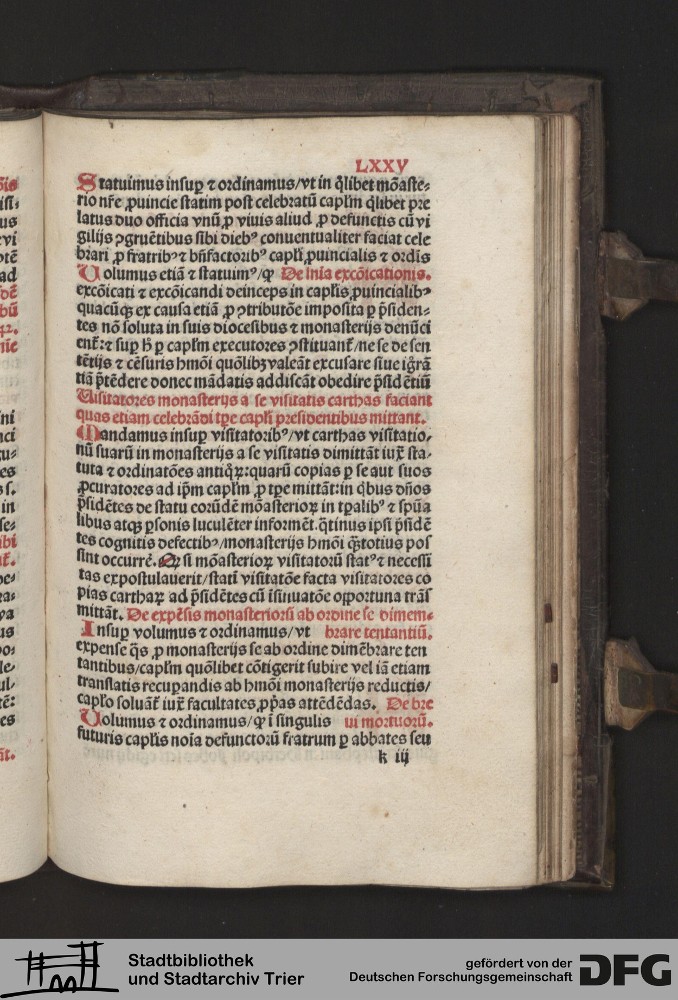 LXXV
Statuimus insuꝑ ⁊ ordinamus/vt in q̄libet mōaste⸗
rio nr̄e ꝓuincie statim post celebratū capl̄m q̄libet pre
latus duo officia vnū ꝓ viuis aliud ꝓ defunctis cū vi
gilijs ꝯgruētibus sibi diebꝰ conuentualiter faciat cele
brari ꝓ fratribꝰ ⁊ bn̄factoribꝰ capl̄i ꝓuincialis ⁊ ordīs
Volumus etiā ⁊ statuimꝰ/ꝙ De lnīa excōicationis.
excōicati ⁊ excōicandi deinceps in capl̄is ꝓuincialibꝰ
quacūqꝫ ex causa etiā ꝓ ꝯtributōe imposita ꝑ p̄siden⸗
tes nō soluta in suis diocesibus ⁊ monasterijs denūci
enť: ⁊ suꝑ ħ ꝑ capl̄m executores ꝯstituanť/ne se de sen
tētijs ⁊ cēsuris hmōi quōlibꝫ valeāt excusare siue igr̄ā
tiā p̄tēdere donec mādatis addiscāt obedire p̄sidētiū
Uisitatores monasterijs a se visitatis carthas faciant
quas etiam celebrādi tꝑe capl̄i presidentibus mittant.
Mandamus insuꝑ visitatoribꝰ/vt carthas visitatio⸗
nū suarū in monasterijs a se visitatis dimittāt iux̄ sta⸗
tuta ⁊ ordinatōes antiq̄ꝝ: quarū copias ꝑ se aut suos
ꝓcuratores ad ip̄m capl̄m ꝓ tꝑe mittāt: in qbus dn̄os
p̄sidētes de statu eorūdē mōasterioꝝ in tꝑalibꝰ ⁊ spūa
libus atqꝫ ꝑsonis luculēter informēt. q̄tinus ipsi p̄sidē
tes cognitis defectibꝰ/monasterijs hmōi q̄ꝫtotius pos
sint occurrē. Qꝛ si mōasterioꝝ visitatorū statꝰ ⁊ necessi
tas expostulauerit/statī visitatōe facta visitatores co
pias carthaꝝ ad p̄sidētes cū isinuatōe oportuna trās
mittāt. De expēsis monasteriorū ab ordine se dimem⸗
Insuꝑ volumus ⁊ ordinamus/vt brare tentantiū.
expense q̄s ꝓ monasterijs se ab ordine dimēbrare ten
tantibus/capl̄m quōlibet cōtigerit subire vel iā etiam
translatis recuꝑandis ab hmōi monasterijs reductis/
capl̄o soluāť iux̄ facultates ꝓp̄as attēdēdas. De bre
Volumus ⁊ ordinamus/ꝙ ī singulis ui mortuorū.
futuris capl̄is noīa defunctorū fratrum ꝑ abbates seu
k iij
Stadtbibliothek
und Stadtarchiv Trier
gefördert von der
Deutschen Forschungsgemeinschaft
DFG